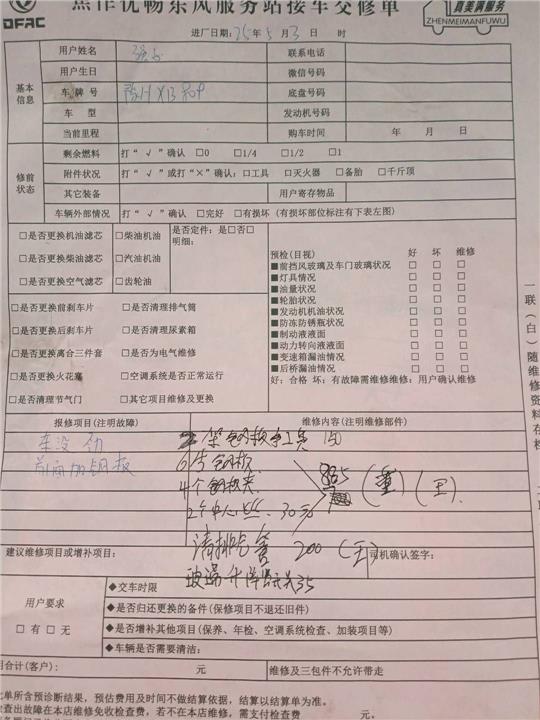 焦作优畅东风服务站接车交修单
DFAC
真美满服务
ZHENMEIMANFUWU
进厂日期: 25年5月3日 时
基本信息
用户姓名
联系电话
用户生日
微信号码
车牌号
底盘号码
车 型
发动机号码
当前里程
购车时间 年 月 日
修前状态
剩余燃料 打“√”确认 □0 □1/4 □1/2 □1
附件状况 打“√”或打“×”确认: □工具 □灭火器 □备胎 □千斤顶
其它装备
用户寄存物品
车辆外部情况 打“√”确认 □完好 □有损坏 (有损坏部位标注有下表左图)
□是否更换机油滤芯 □柴油机油
□是否更换柴油滤芯 □汽油机油
□是否更换空气滤芯 □齿轮油
是否定件: 是□否□
明细:
□是否更换前刹车片 □是否清理排气筒
□是否更换后刹车片 □是否清理尿素箱
□是否更换离合三件套 □是否为电气维修
□是否更换火花塞 □空调系统是否正常运行
□是否清理节气门 □其它项目维修及更换
预检(目视) 好 坏 维修
■前挡风玻璃及车门玻璃状况 □ □ □
■灯具情况 □ □ □
■油量状况 □ □ □
■轮胎状况 □ □ □
■发动机机油状况 □ □ □
■防冻防锈瓶状况 □ □ □
■制动液液面 □ □ □
■动力转向液液面 □ □ □
■变速箱漏油情况 □ □ □
■后桥漏油情况 □ □ □
好: 合格 坏: 有故障需维修维修: 用户确认维修
一联(白)随维修资料存档
报修项目(注明故障)
维修内容(注明维修部件)
车没劲
前面加钢板
架钢板手工费 150
6片钢板
4个钢板夹
2个中心丝. 30元
865 (董)(王).
清排气管 200 (王)
玻璃升降开关35
建议维修项目或增补项目:
司机确认签字:
用户要求
□有□无
◆交车时限
◆是否归还更换的备件(保修项目不退还旧件)
◆是否增补其他项目(保养、年检、空调系统检查、加装项目等)
◆车辆是否需要清洁:
用合计(客户): 元
维修及三包件不允许带走
此单所含预诊断结果, 预估费用及时间不做结算依据, 结算以结算单为准。
检查出故障在本店维修免收检查费, 若不在本店维修, 需支付检查费 元。